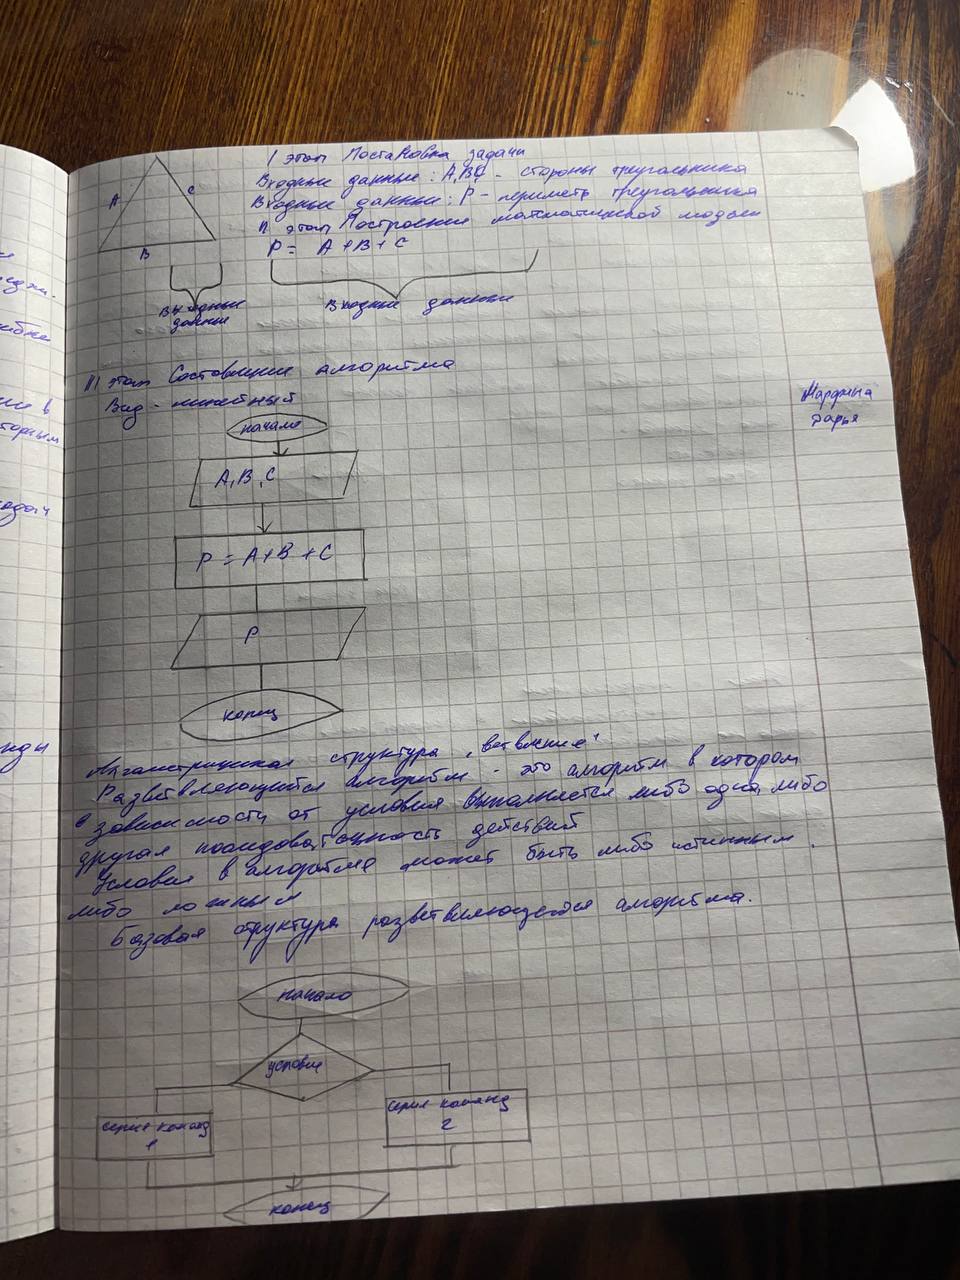 A
C
B
I этап Постановка задачи
Входные данные: A,B,C - стороны треугальника
Входные данные: P - периметр треугальника
II этап Построение математической модели
P = A + B + C
Выходные
данные
Входные данные
III этап Составление алгоритма
Вид - линейный
начало
A, B, C
P = A + B + C
P
конец
Марфина
Дарья
Алгаметрицикая структура "ветвление"
Разветвляющийся алгоритм - это алгоритм в котором
в зависимости от условия выполняется либо одна, либо
другая последовательность действий
Условия в алгоритме может быть либо истинным,
либо ложным
Базовая структура разветвляющегося алгоритма.
начало
условие
серия команд
1
серия команд
2
конец
ле
ие в
торым
задач
нды